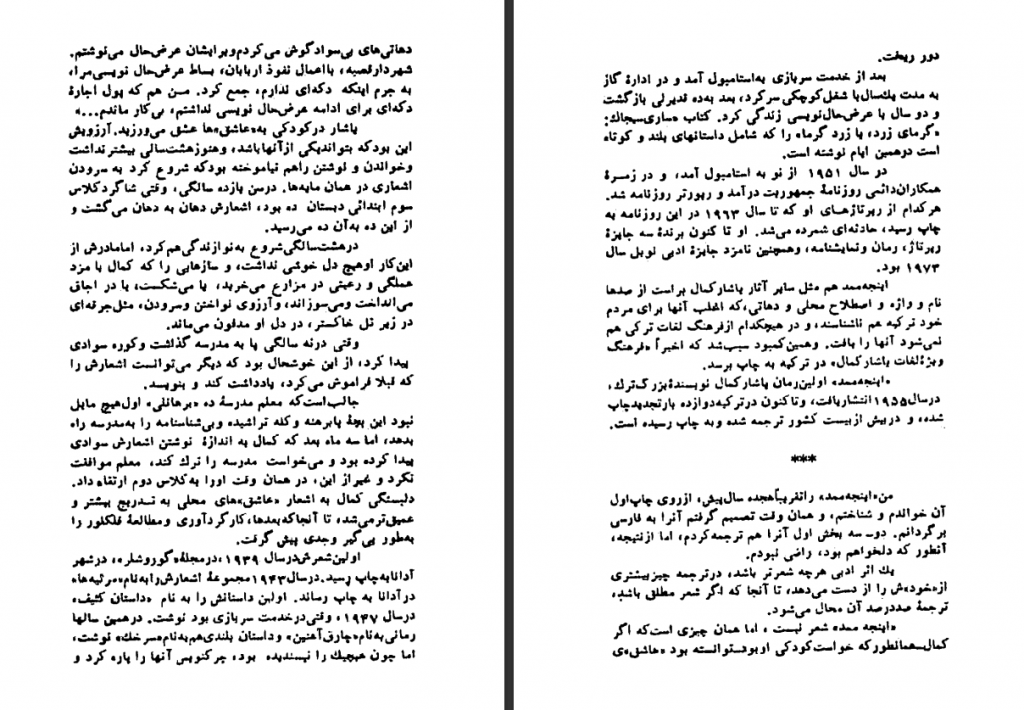 دهاتی‌های بی‌سواد گوش می‌کردم و برایشان عرض‌حال می‌نوشتم.
شهردار قصبه، با اعمال نفوذ اربابان، بساط عرض‌حال نویسی مرا،
به جرم اینکه دکه‌ای ندارم، جمع کرد. من هم که پول اجارهٔ
دکه‌ای برای ادامه عرض‌حال نویسی نداشتم، بی‌کار ماندم...»
یاشار در کودکی به «عاشق»ها عشق می‌ورزید. آرزویش
این بود که بتواند یکی از آنها باشد، و هنوز هشت‌سالی بیشتر نداشت
و خواندن و نوشتن را هم نیاموخته بود که شروع کرد به سرودن
اشعاری در همان مایه‌ها. در سن یازده سالگی، وقتی شاگرد کلاس
سوم ابتدائی دبستان ده بود، اشعارش دهان به دهان می‌گشت و
از این ده به آن ده می‌رسید.
در هشت‌سالگی شروع به نوازندگی هم کرد، اما مادرش از
این کار او هیچ دل خوشی نداشت، و سازهایی را که کمال با مزد
عملگی و رعیتی در مزارع می‌خرید، یا می‌شکست، یا در اجاق
می‌انداخت و می‌سوزاند، و آرزوی نواختن و سرودن، مثل جرقه‌ای
در زیر تل خاکستر، در دل او مدفون می‌ماند.
وقتی در نه سالگی پا به مدرسه گذاشت و کوره سوادی
پیدا کرد، از این خوشحال بود که دیگر می‌توانست اشعارش را
که قبلا فراموش می‌کرد، یادداشت کند و بنویسد.
جالب است که معلم مدرسهٔ ده «برهانلی» اول هیچ مایل
نبود این بچهٔ پابرهنه و کله تراشیده و بی‌شناسنامه را به مدرسه راه
بدهد، اما سه ماه بعد که کمال به اندازهٔ نوشتن اشعارش سوادی
پیدا کرده بود و می‌خواست مدرسه را ترک کند، معلم موافقت
نکرد و غیر از این، در همان وقت او را به کلاس دوم ارتقاء داد.
دلبستگی کمال به اشعار «عاشق»های محلی به تدریج بیشتر و
عمیق‌تر می‌شد، تا آنجا که بعدها، کار گردآوری و مطالعهٔ فلکلور را
به‌طور پی‌گیر و جدی پیش گرفت.
اولین شعرش در سال ۱۹۳۹، در مجلهٔ «گوروشلر»، در شهر
آدانا به چاپ رسید. در سال ۱۹۴۳ مجموعهٔ اشعارش را به نام «مرثیه‌ها»
در آدانا به چاپ رساند. اولین داستانش را به نام «داستان کثیف»
در سال ۱۹۴۷، وقتی در خدمت سربازی بود نوشت. در همین سالها
رمانی به نام «چارق آهنین» و داستان بلندی هم به نام «سرخک» نوشت،
اما چون هیچیک را نپسندیده بود، چرکنویس آنها را پاره کرد و
دور ریخت.
بعد از خدمت سربازی به استامبول آمد و در ادارهٔ گاز
به مدت یکسال با شغل کوچکی سر کرد، بعد به ده قدیرلی بازگشت
و دو سال با عرض‌حال‌نویسی زندگی کرد. کتاب «ساری‌سیجاک:
«گرمای زرد، یا زرد گرما» را که شامل داستانهای بلند و کوتاه
است در همین ایام نوشته است.
در سال ۱۹۵۱ از نو به استامبول آمد، و در زمرهٔ
همکاران دائمی روزنامهٔ جمهوریت درآمد و رپورتر روزنامه شد.
هر کدام از رپرتاژهای او که تا سال ۱۹۶۳ در این روزنامه به
چاپ رسید، حادثه‌ای شمرده می‌شد. او تا کنون برندهٔ سه جایزهٔ
رپرتاژ، رمان و نمایشنامه، و همچنین نامزد جایزهٔ ادبی نوبل سال
۱۹۷۳ بود.
اینجه‌ممد هم مثل سایر آثار یاشار کمال پر است از صدها
نام و واژه و اصطلاح محلی و دهاتی، که اغلب آنها برای مردم
خود ترکیه هم ناشناسند، و در هیچکدام از فرهنگ لغات ترکی هم
نمی‌شود آنها را یافت. و همین کمبود سبب شد که اخیراً «فرهنگ
ویژهٔ لغات یاشار کمال» در ترکیه به چاپ برسد.
«اینجه‌ممد» اولین رمان یاشار کمال نویسندهٔ بزرگ ترک،
در سال ۱۹۵۵ انتشار یافت، و تا کنون در ترکیه دوازده بار تجدید چاپ
شده، و در بیش از بیست کشور ترجمه شده و به چاپ رسیده است.
***
من «اینجه‌ممد» را تقریباً هجده سال پیش، از روی چاپ اول
آن خواندم و شناختم، و همان وقت تصمیم گرفتم آنرا به فارسی
برگردانم. دو ـ سه بخش اول آنرا هم ترجمه کردم، اما از نتیجه،
آنطور که دلخواهم بود، راضی نبودم.
یک اثر ادبی هرچه شعرتر باشد، در ترجمه چیز بیشتری
از «خود»ش را از دست می‌دهد، تا آنجا که اگر شعر مطلق باشد،
ترجمهٔ صددرصد آن محال می‌شود.
«اینجه ممد» شعر نیست، اما همان چیزی است که اگر
کمال ـ همانطور که خواست کودکی او بود ـ توانسته بود «عاشق»ی